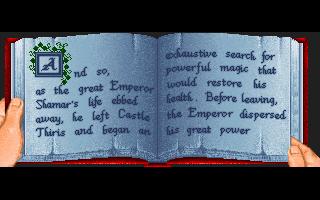 And so,
as the great Emperor
Shamar's life ebbed
away, he left Castle
Thiris and began an
exhaustive search for
powerful magic that
would restore his
health. Before leaving,
the Emperor dispersed
his great power